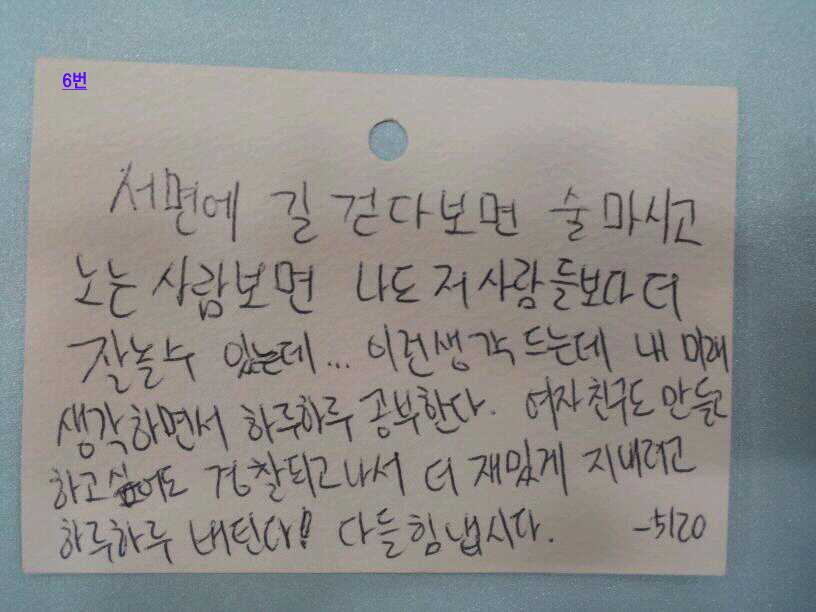 6번
서면에 길 걷다보면 술마시고
노는 사람보면 나도 저 사람들보다 더
잘놀수 있는데... 이런생각 드는데 내 미래
생각하면서 하루하루 공부한다. 여자친구도 만들고
하고싶어도 경찰되고나서 더 재밌게 지내려고
하루하루 버틴다! 다들힘냅시다. -5120